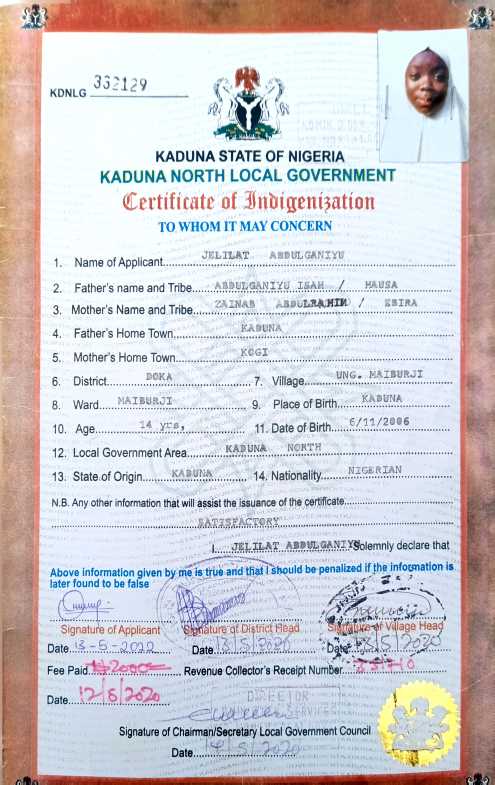 KDNLG 332129
KADUNA STATE OF NIGERIA
KADUNA NORTH LOCAL GOVERNMENT
Certificate of Indigenization
TO WHOM IT MAY CONCERN
1. Name of Applicant JELILAT ABDULGANIYU
2. Father's name and Tribe ABDULGANIYU ISAH / HAUSA
3. Mother's Name and Tribe ZAINAB ABDULRAHIM / EBIRA
4. Father's Home Town KADUNA
5. Mother's Home Town KOGI
6. District DOKA 7. Village UNG. MAIBURJI
8. Ward MAIBURJI 9. Place of Birth KADUNA
10. Age 14 yrs, 11. Date of Birth 6/11/2006
12. Local Government Area KADUNA NORTH
13. State of Origin KADUNA 14. Nationality NIGERIAN
N.B. Any other information that will assist the issuance of the certificate
SATISFACTORY
I JELILAT ABDULGANIYU Solemnly declare that
Above information given by me is true and that I should be penalized if the information is
later found to be false
Signature of Applicant Signature of District Head Signature of Village Head
Date 13-5-2022 Date 13/5/2020 Date 13/5/2020
Fee Paid ₦2000= Revenue Collector's Receipt Number
Date 12/6/2020
DIRECTOR
Signature of Chairman/Secretary Local Government Council
Date 14/5/2020